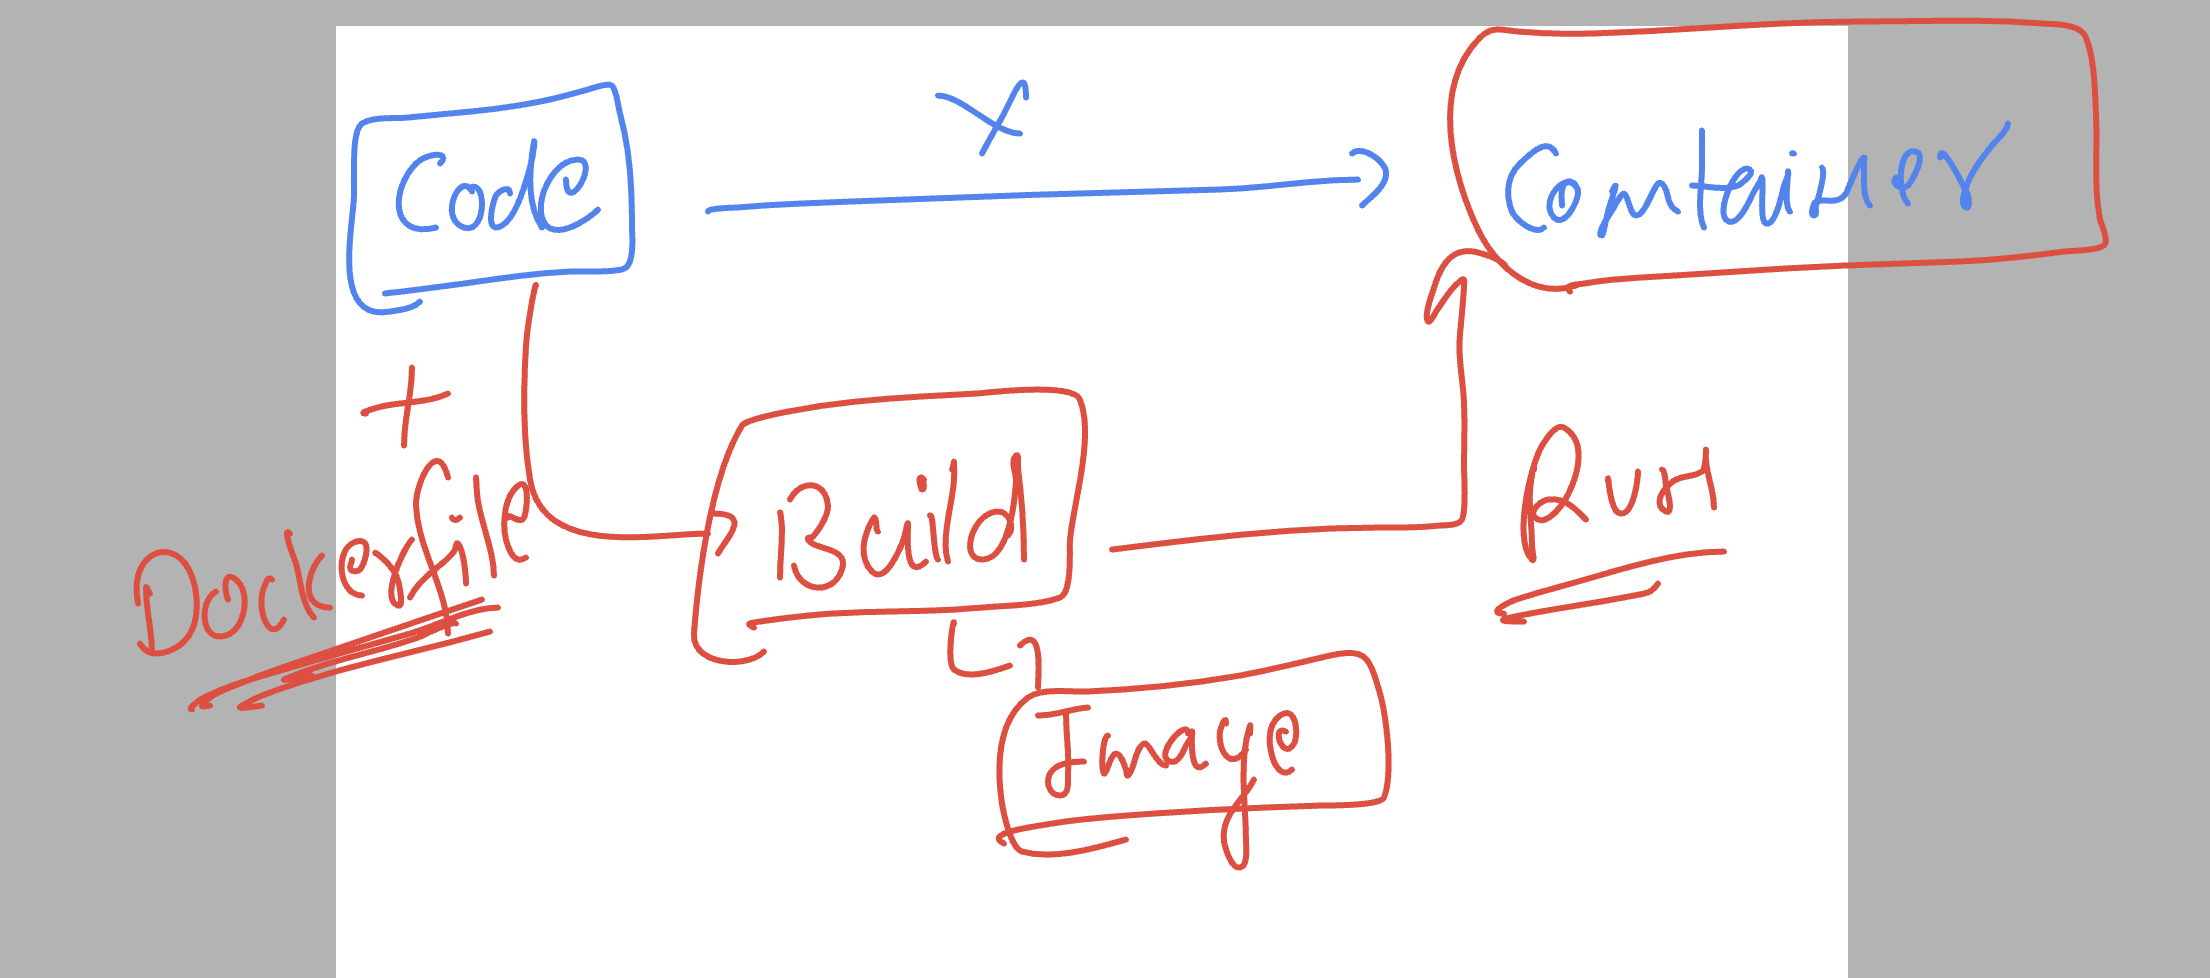 Code
X
Container
+
Dockerfile
Build
Run
Image